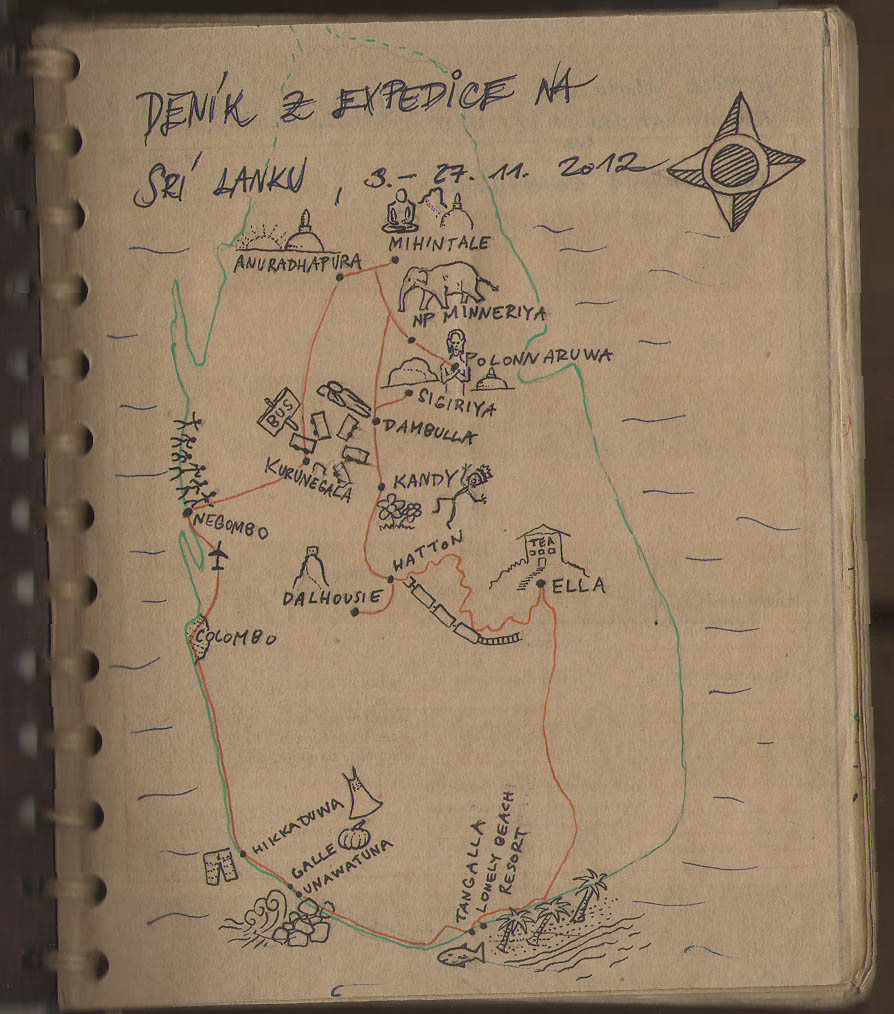 DENÍK Z EXPEDICE NA
SRÍ LANKU, 3.– 27. 11. 2012
MIHINTALE
ANURADHAPURA
NP MINNERIYA
POLONNARUWA
SIGIRIYA
BUS
DAMBULLA
KURUNEGALA
KANDY
NEGOMBO
HATTON
TEA
DALHOUSIE
ELLA
COLOMBO
HIKKADUWA
GALLE
UNAWATUNA
TANGALLA
LONELY BEACH
RESORT